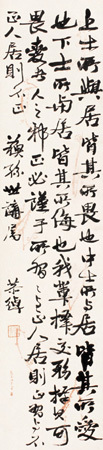 上士所與居皆其所畏也中士所與居皆其所愛
也下士所與居皆其所侮也我輩擇交務擇其可
畏愛者人之邪正必謹于所習習與正人居則正習與不
正人居則不正 孫世講屬